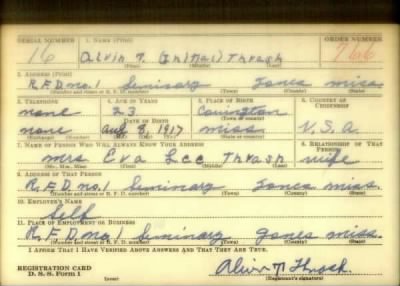 SERIAL NUMBER 1. NAME (Print) ORDER NUMBER
16 Alvin T. (Initial) Thrash 766
(First) (Middle) (Last)
2. ADDRESS (Print)
R.F.D. no. 1 Seminary Jones miss.
(Number and street or R. F. D. number) (Town) (County) (State)
3. TELEPHONE 4. AGE IN YEARS 5. PLACE OF BIRTH 6. COUNTRY OF CITIZENSHIP
none 23 Covington
(Town or county)
DATE OF BIRTH
none Aug 8, 1917 miss U.S.A.
(Exchange) (Number) (Mo.) (Day) (Yr.) (State or country)
7. NAME OF PERSON WHO WILL ALWAYS KNOW YOUR ADDRESS 8. RELATIONSHIP OF THAT PERSON
mrs Eva Lee Thrash wife
(Mr., Mrs., Miss) (First) (Middle) (Last)
9. ADDRESS OF THAT PERSON
R.F.D. no. 1 Seminary Jones miss.
(Number and street or R. F. D. number) (Town) (County) (State)
10. EMPLOYER'S NAME
Self
11. PLACE OF EMPLOYMENT OR BUSINESS
R.F.D. no 1 Seminary Jones miss.
(Number and street or R. F. D. number) (Town) (County) (State)
I AFFIRM THAT I HAVE VERIFIED ABOVE ANSWERS AND THAT THEY ARE TRUE.
REGISTRATION CARD
D. S. S. Form 1 Alvin T Thrash
(Registrant's signature)